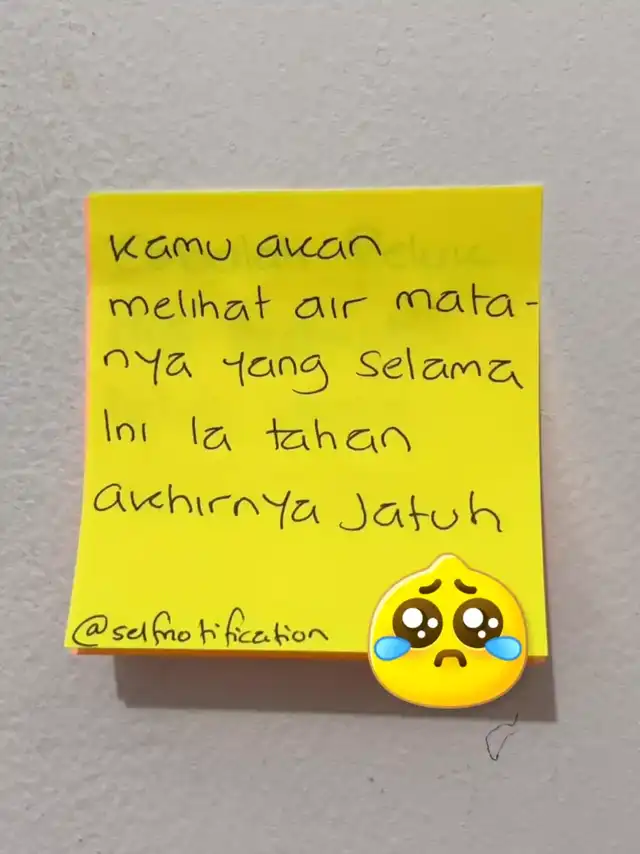 Kamu akan
melihat air mata-
nya yang selama
ini ia tahan
akhirnya jatuh
@selfnotification